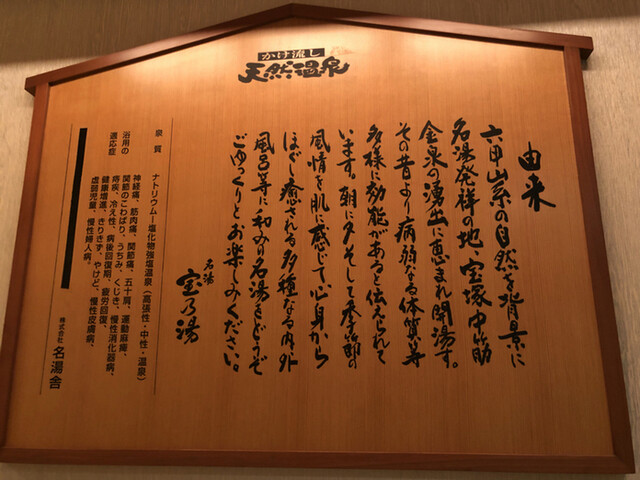 かけ流し
天然温泉
由来
六甲山系の自然を背景に
名湯発祥の地・宝塚中筋
金泉の湧出に恵まれ開湯す。
その昔より病弱なる体質等
多様に効能があると伝えられて
います。朝に夕そして季節の
風情を肌に感じて心身から
ほぐし癒される多種なる内外
風呂等に和み名湯をどうぞ
ごゆっくりとお楽しみください。
名湯
宝乃湯
泉質 ナトリウムー塩化物強塩温泉(高張性・中性・温泉)
浴用の
適応症
神経痛、筋肉痛、関節痛、五十肩、運動麻痺、
関節のこわばり、うちみ、くじき、慢性消化器病、
痔疾、冷え性、病後回復期、疲労回復、
健康増進、きりきず、やけど、慢性皮膚病、
虚弱児童、慢性婦人病。
株式会社 名湯舎